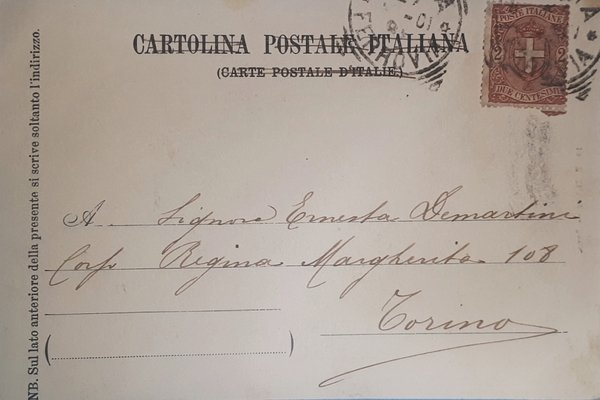 CARTOLINA POSTALE ITALIANA
(CARTE POSTALE D'ITALIE.)
POSTE ITALIANE
2 2
DUE CENTESIMI
NB. Sul lato anteriore della presente si scrive soltanto l'indirizzo.
A Signora Ernesta Demartini
Corso Regina Margherita 108
Torino